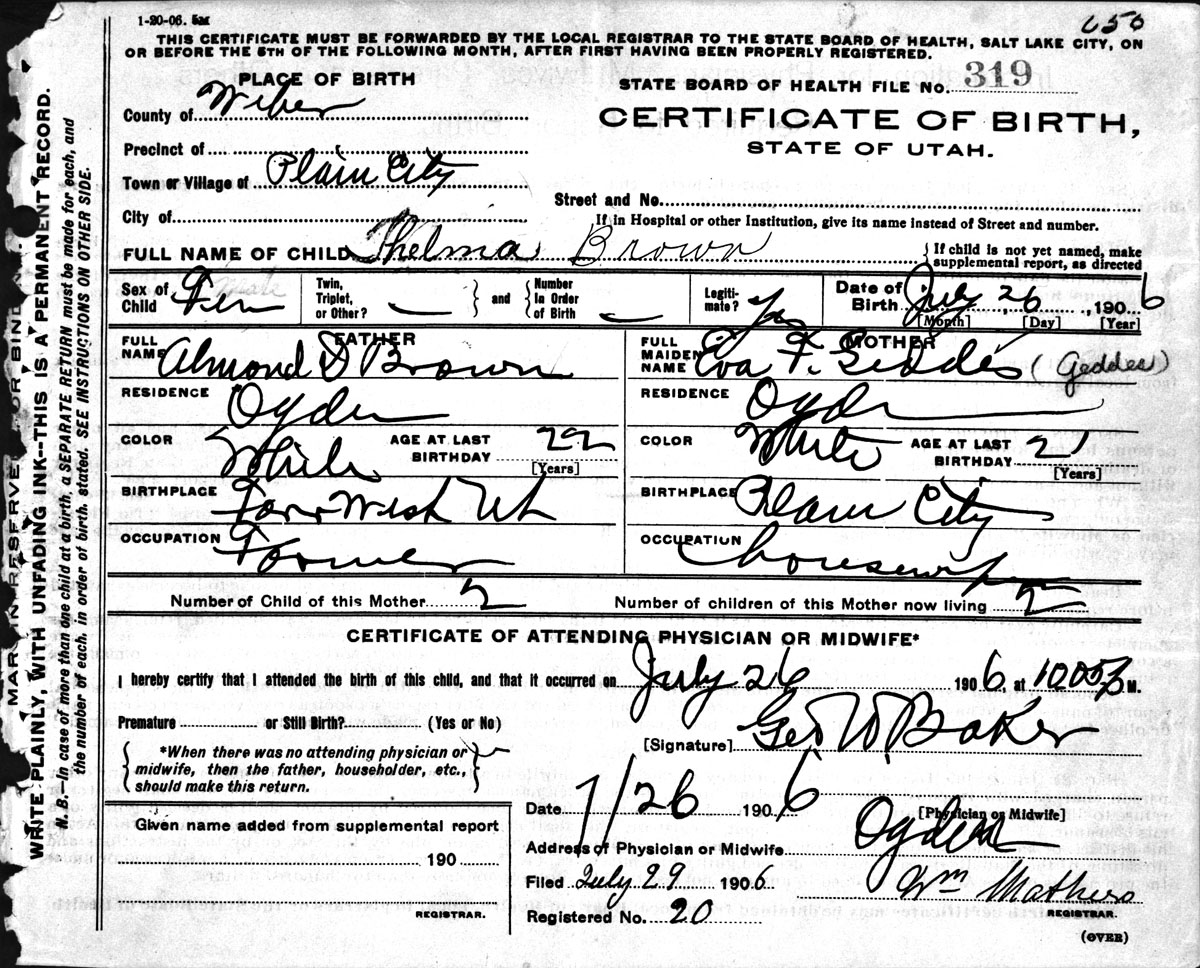 1-20-06. 5M
650
THIS CERTIFICATE MUST BE FORWARDED BY THE LOCAL REGISTRAR TO THE STATE BOARD OF HEALTH, SALT LAKE CITY, ON
OR BEFORE THE 5TH OF THE FOLLOWING MONTH, AFTER FIRST HAVING BEEN PROPERLY REGISTERED.
PLACE OF BIRTH
STATE BOARD OF HEALTH FILE No. 319
County of Weber
CERTIFICATE OF BIRTH,
STATE OF UTAH.
Precinct of
Town or Village of Plain City
Street and No.
City of
If in Hospital or other Institution, give its name instead of Street and number.
FULL NAME OF CHILD Thelma Brown
{ If child is not yet named, make
supplemental report, as directed
Sex of
Child Fem
Twin,
Triplet,
or Other? —
} and {
Number
In Order
of Birth —
Legiti-
mate? Yes
Date of
Birth July 26, 1906
[Month] [Day] [Year]
FATHER
FULL
NAME Almond D Brown
RESIDENCE Ogden
COLOR White
AGE AT LAST
BIRTHDAY 22
[Years]
BIRTHPLACE Farr West Ut
OCCUPATION Farmer
MOTHER
FULL
MAIDEN
NAME Eva F. Geddes (Geddes)
RESIDENCE Ogden
COLOR White
AGE AT LAST
BIRTHDAY 21
[Years]
BIRTHPLACE Plain City
OCCUPATION housewife
Number of Child of this Mother 2
Number of children of this Mother now living 2
CERTIFICATE OF ATTENDING PHYSICIAN OR MIDWIFE*
I hereby certify that I attended the birth of this child, and that it occurred on July 26 1906, at M.
Premature or Still Birth? (Yes or No)
[Signature] Geo W Baker
[Physician or Midwife]
{ *When there was no attending physician or
midwife, then the father, householder, etc.,
should make this return. }
Date 7/26 1906
Address of Physician or Midwife Ogden
Given name added from supplemental report
190
REGISTRAR.
Filed July 29 1906 Wm Mathers
REGISTRAR.
Registered No. 20
(OVER)
MARGIN RESERVED FOR BINDING.
WRITE PLAINLY, WITH UNFADING INK--THIS IS A PERMANENT RECORD.
N. B.—In case of more than one child at a birth, a SEPARATE RETURN must be made for each, and
the number of each, in order of birth, stated. SEE INSTRUCTIONS ON OTHER SIDE.